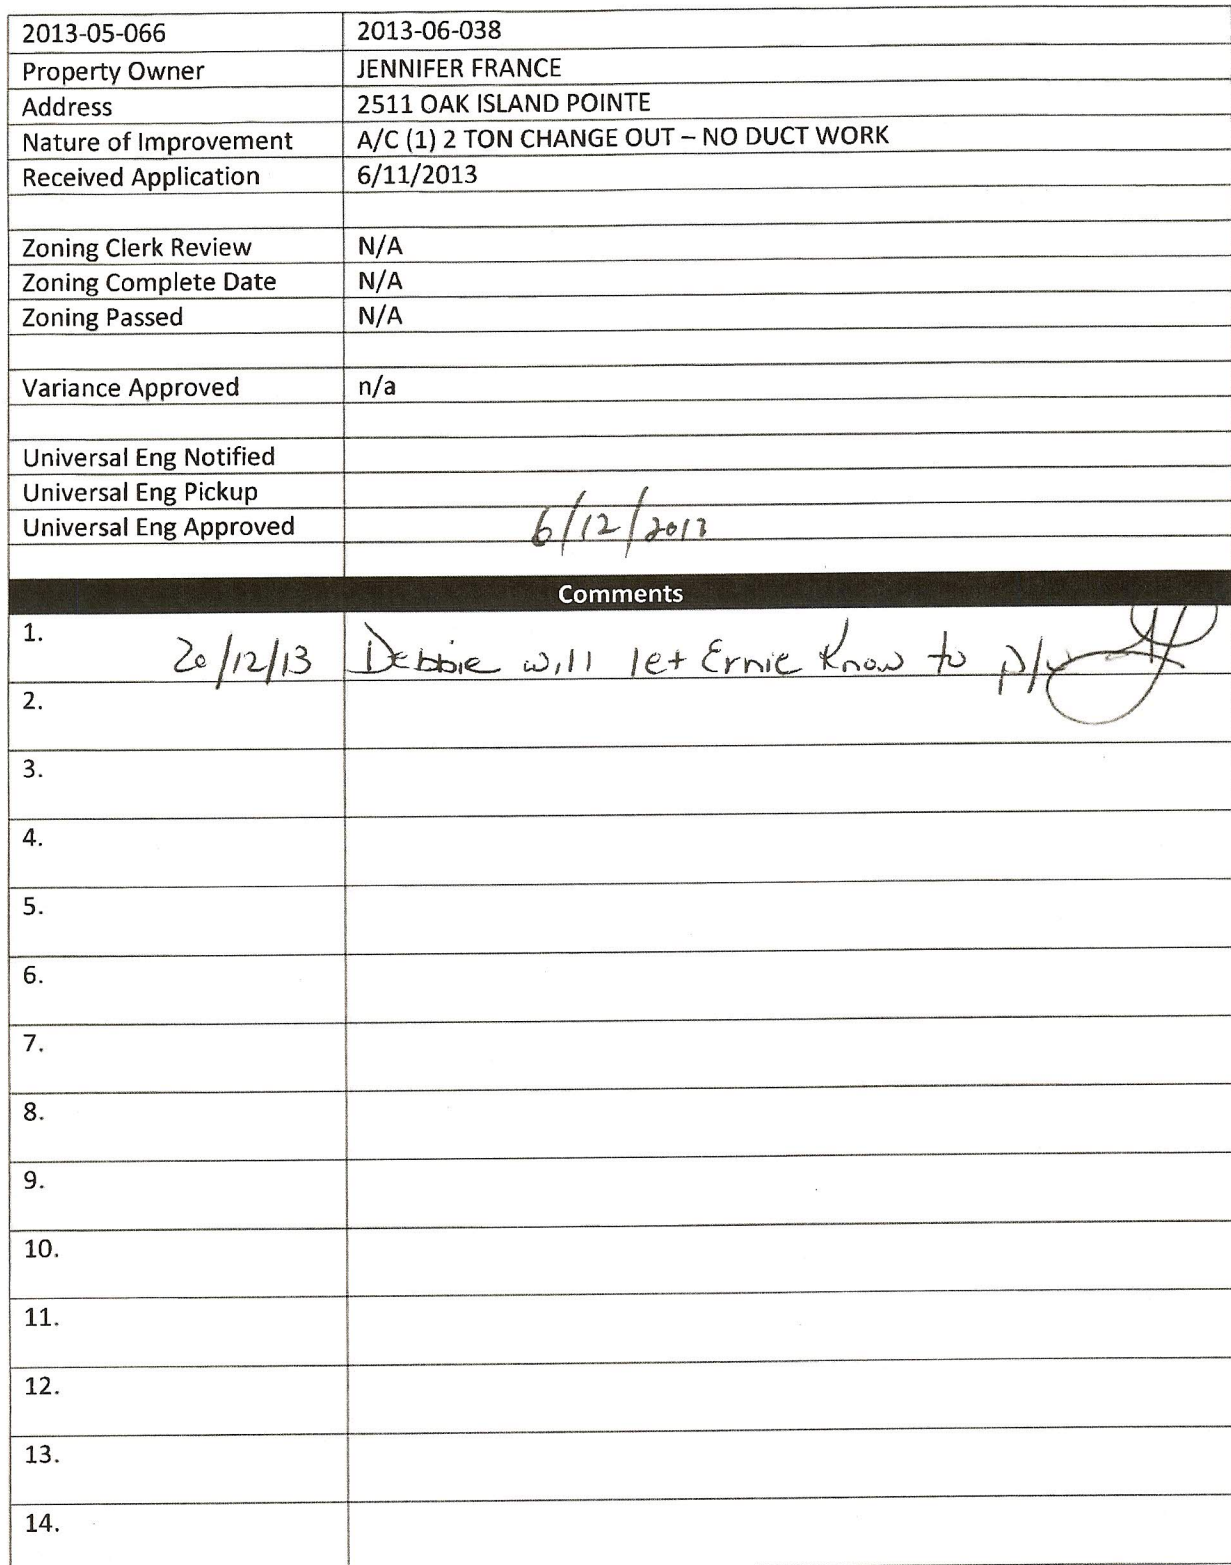 2013-05-066 2013-06-038
Property Owner JENNIFER FRANCE
Address 2511 OAK ISLAND POINTE
Nature of Improvement A/C (1) 2 TON CHANGE OUT – NO DUCT WORK
Received Application 6/11/2013
Zoning Clerk Review N/A
Zoning Complete Date N/A
Zoning Passed N/A
Variance Approved n/a
Universal Eng Notified
Universal Eng Pickup
Universal Eng Approved 6/12/2013
Comments
1. /12/13 Debbie will let Ernie Know to p/u
2.
3.
4.
5.
6.
7.
8.
9.
10.
11.
12.
13.
14.